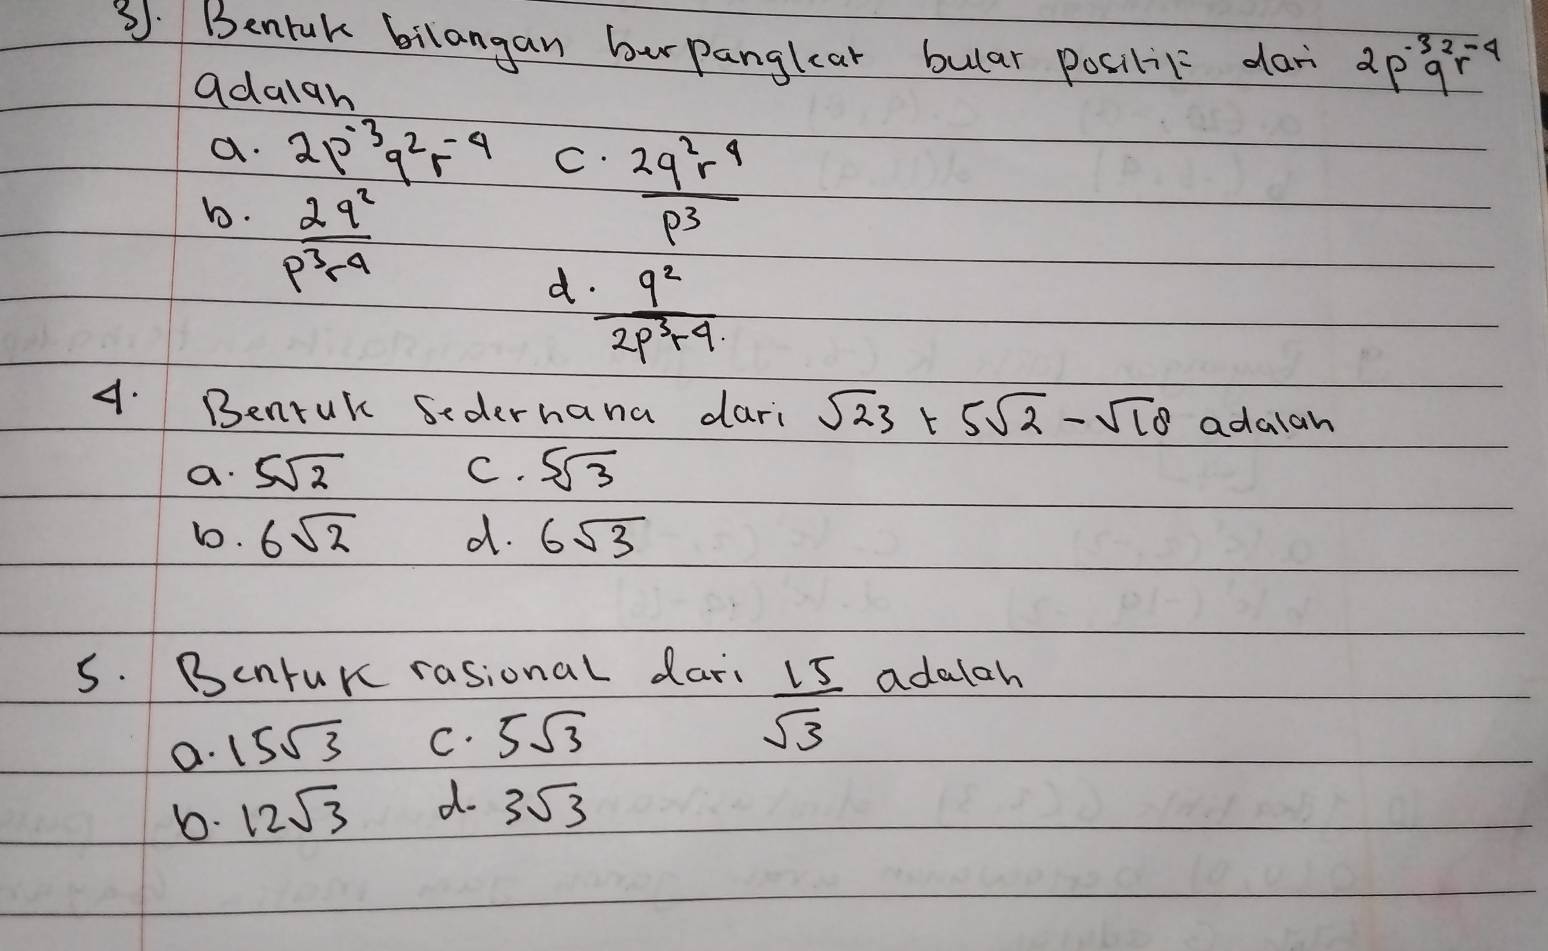 3). Bentuk bilangan berpangkat bulat positif dari 2p⁻³q²r⁻⁴
adalah
a. 2p⁻³q²r⁻⁴ c. 2q²r⁴/p³
b. 2q²/p³r⁴
d. q²/2p³r⁴.
4. Bentuk sederhana dari √23 + 5√2 - √18 adalah
a. 5√2 c. 5√3
b. 6√2 d. 6√3
5. Bentuk rasional dari 15/√3 adalah
a. 15√3 c. 5√3
b. 12√3 d. 3√3